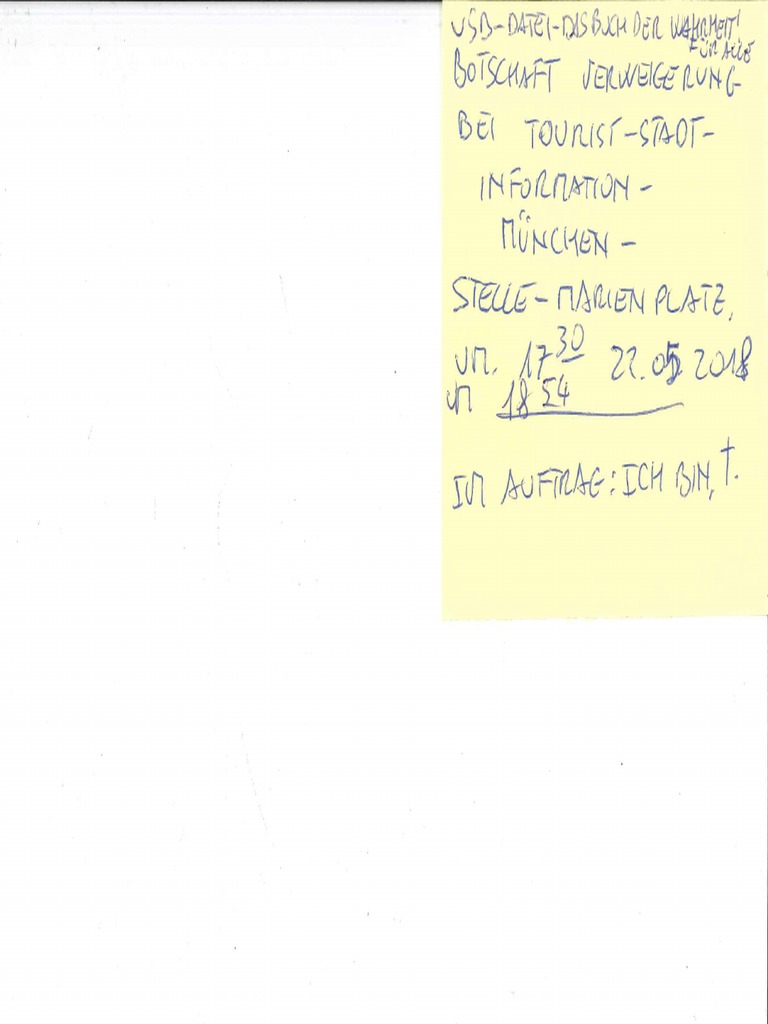 USB-DATEI-DAS BUCH DER WAHRHEIT!
FÜR ALLE
BOTSCHAFT VERWEIGERUNG
BEI TOURIST-STADT-
INFORMATION-
MÜNCHEN-
STELLE-MARIENPLATZ,
UM. 17 30 22.05 2018
UM 18 54
IM AUFTRAG: ICH BIN, †.